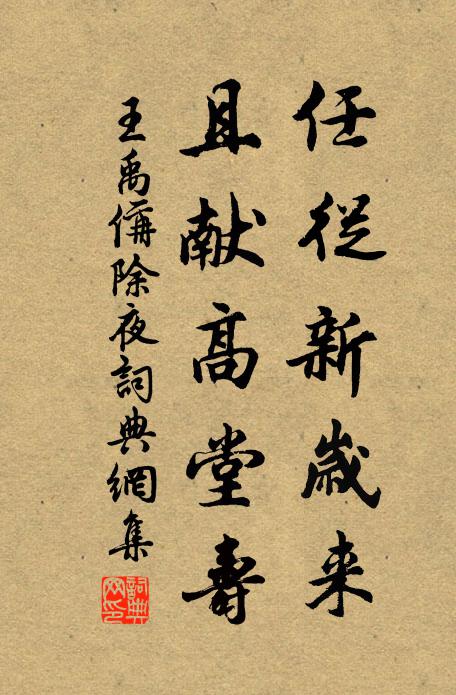 任從新歲来
且献高堂壽
王禹偁除夜詞典網集
詞典網印